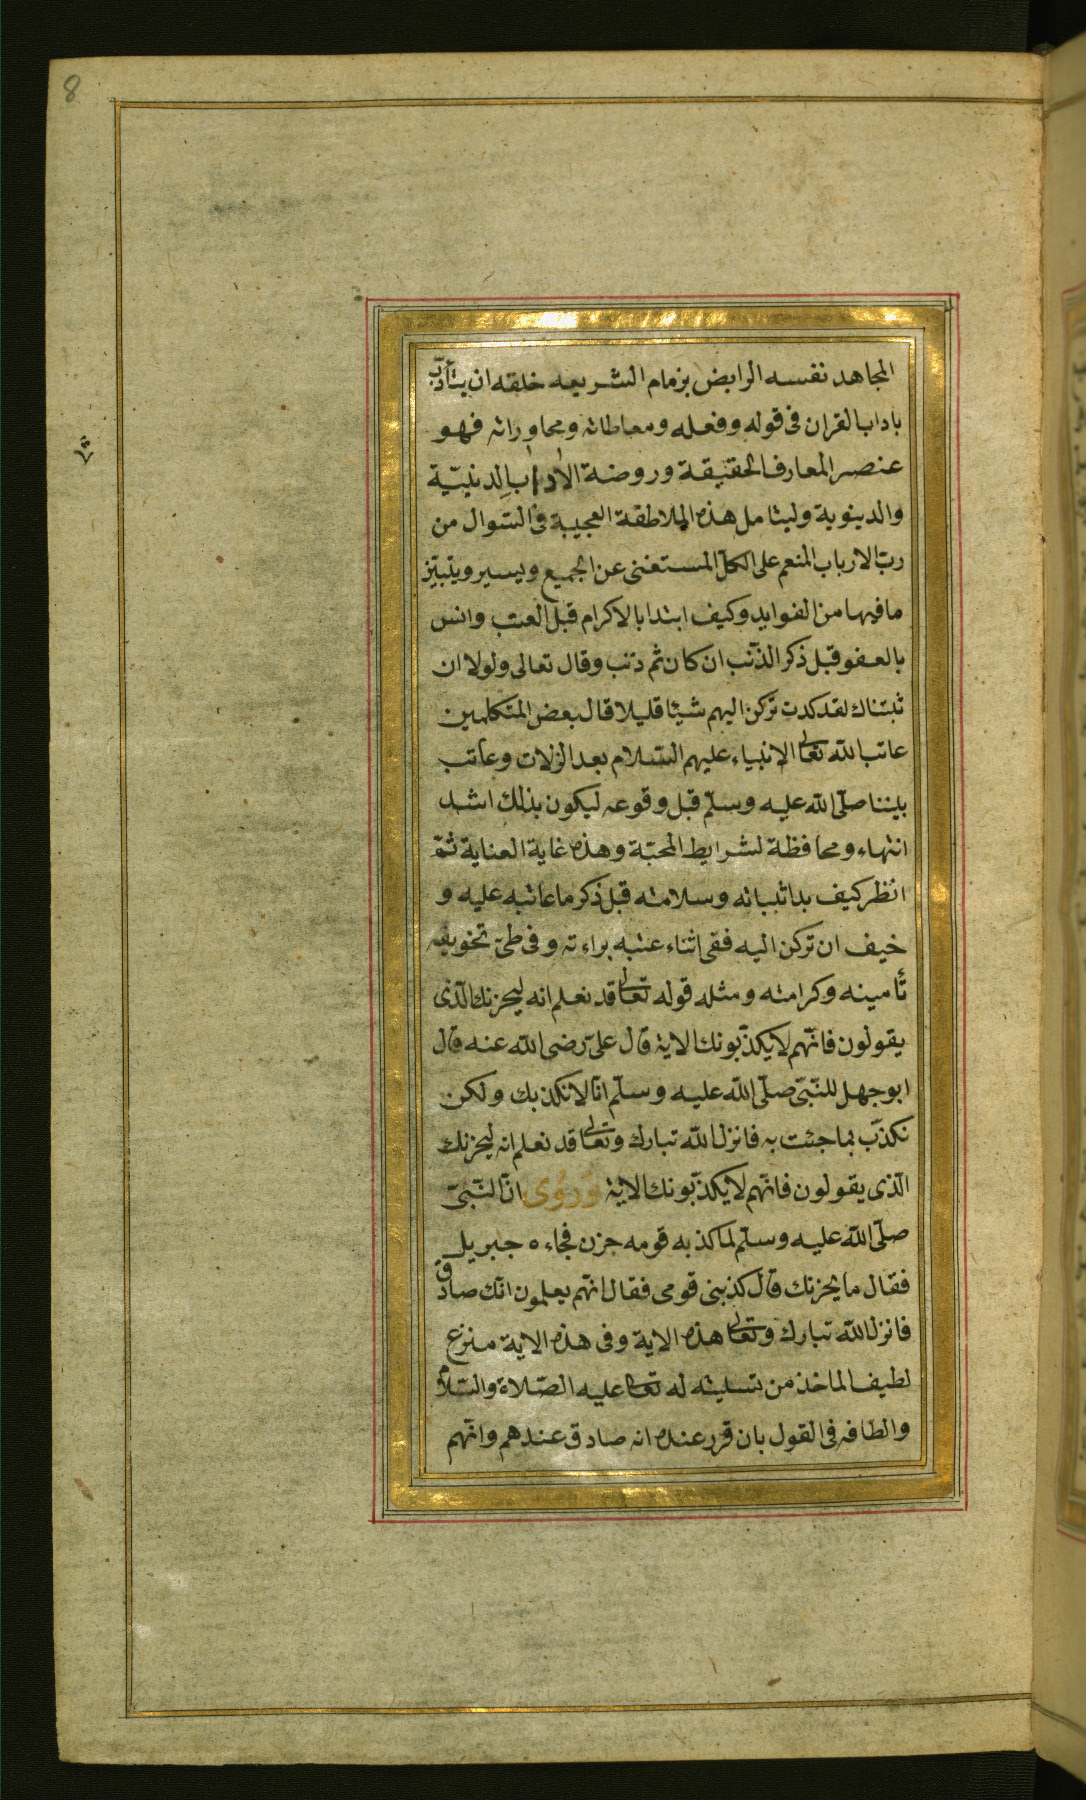 8
المجاهد نفسه الرابض بزمام الشريعه خلقه ان يتأدّب
باداب القران فى قوله وفعله ومعاطاته ومحاوراته فهو
عنصر المعارف الحقيقة وروضة الاداب الدنيّية
والدينوية وليتامل هذه الملاطفة العجيبة فى السّوال من
ربّ الارباب المنعم على الكلّ المستغنى عن الجميع ويسير ويتبيّز
ما فيها من الفوايد وكيف ابتدا بالاكرام قبل العتب وانس
بالعفو قبل ذكر الذّنب ان كان ثم ذنب وقال تعالى ولولا ان
ثبتناك لقد كدت تركن اليهم شيئا قليلا قال بعض المتكلمين
عاتب اللّه تعالى الانبياء عليهم السّلام بعد الزلات وعاتب
بيننا صلّى اللّه عليه وسلّم قبل وقوعه ليكون بذلك اشد
انتهاء ومحافظة لشرايط المحبّة وهذه غاية العناية ثمّ
انظر كيف بدا بثباته وسلامته قبل ذكر ما عاتبه عليه و
خيف ان تركن اليه ففى اثناء عتبه براءته وفى طىّ تخويفه
تأمينه وكرامته ومثله قوله تعالى قد نعلم انه ليحزنك الّذى
يقولون فانّهم لا يكذّبونك الاية قال علىّ رضى اللّه عنه قال
ابو جهل للنّبىّ صلّى اللّه عليه وسلّم انّا لا نكذبك ولكن
نكذّب بما جئت به فانزل اللّه تبارك وتعالى قد نعلم انه ليحزنك
الّذى يقولون فانّهم لا يكذّبونك الاية وروى انّ النّبىّ
صلّى اللّه عليه وسلّم لما كذبه قومه حزن فجاءه جبريل
فقال ما يحزنك قال كذبنى قومى فقال انّهم يعلمون انّك صادق
فانزل اللّه تبارك وتعالى هذه الاية وفى هذه الاية منزع
لطيف الماخذ من تسليته له تعالى عليه الصّلاة والسّلام
والطافه فى القول بان قرر عنده انه صادق عندهم وانّهم